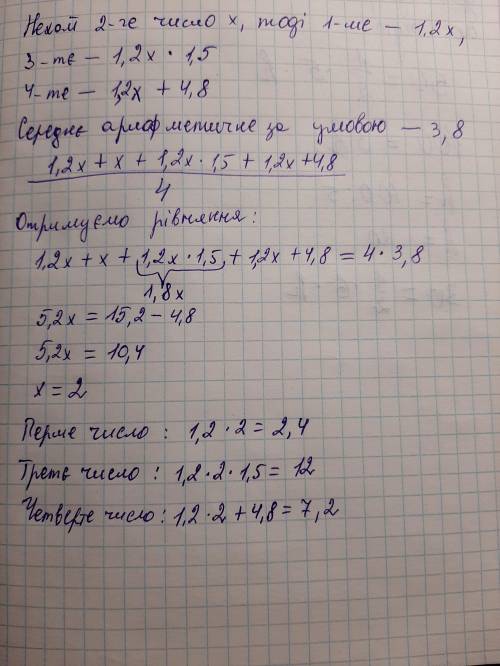 Нехай 2-ге число x, тоді 1-ше — 1,2x,
3-тє — 1,2x · 1,5
4-те — 1,2x + 4,8
Середнє арифметичне за умовою — 3,8
1,2x + x + 1,2x · 1,5 + 1,2x + 4,8
4
Отримуємо рівняння:
1,2x + x + 1,2x · 1,5 + 1,2x + 4,8 = 4 · 3,8
1,8x
5,2x = 15,2 – 4,8
5,2x = 10,4
x = 2
Перше число: 1,2 · 2 = 2,4
Третє число: 1,2 · 2 · 1,5 = 12
Четверте число: 1,2 · 2 + 4,8 = 7,2